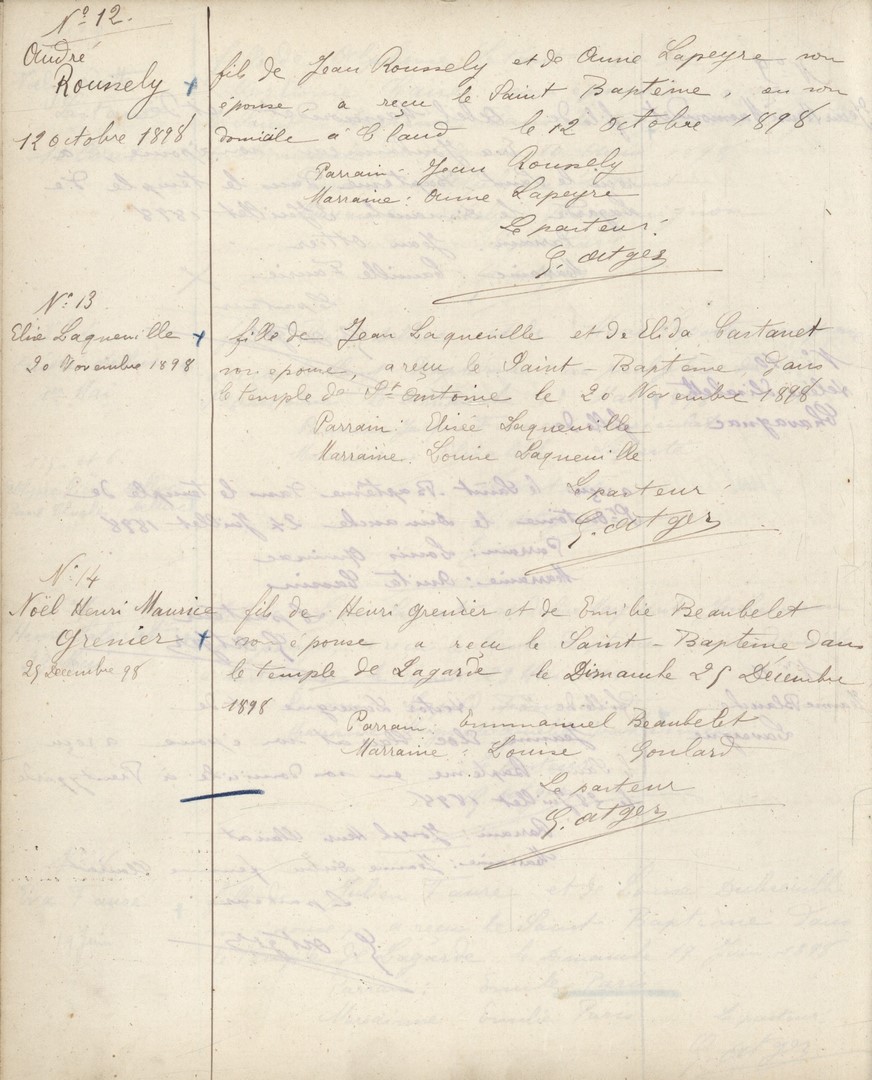 N° 12.
André
Roussely
12 octobre 1898
fils de Jean Roussely et de Anne Lapeyre son
épouse, a reçu le Saint Baptême, en son
domicile à Claud le 12 octobre 1898
Parrain: Jean Roussely
Marraine: Anne Lapeyre
Le pasteur:
G. Atger
N° 13
Elise Laqueuille
20 Novembre 1898
fille de Jean Laqueuille et de Elida Castanet
son épouse, a reçu le Saint-Baptême Dans
le temple de St Antoine le 20 Novembre 1898
Parrain: Elisée Laqueuille
Marraine. Louise Laqueuille
Le pasteur:
G. Atger
N° 14
Noël Henri Maurice
Grenier
25 Decembre 98
fils de Henri Grenier et de Emilie Beaubelet
son épouse a reçu le Saint-Baptême dans
le temple de Lagarde le Dimanche 25 Décembre
1898
Parrain: Emmanuel Beaubelet
Marraine: Louise Goulard
Le pasteur
G. Atger